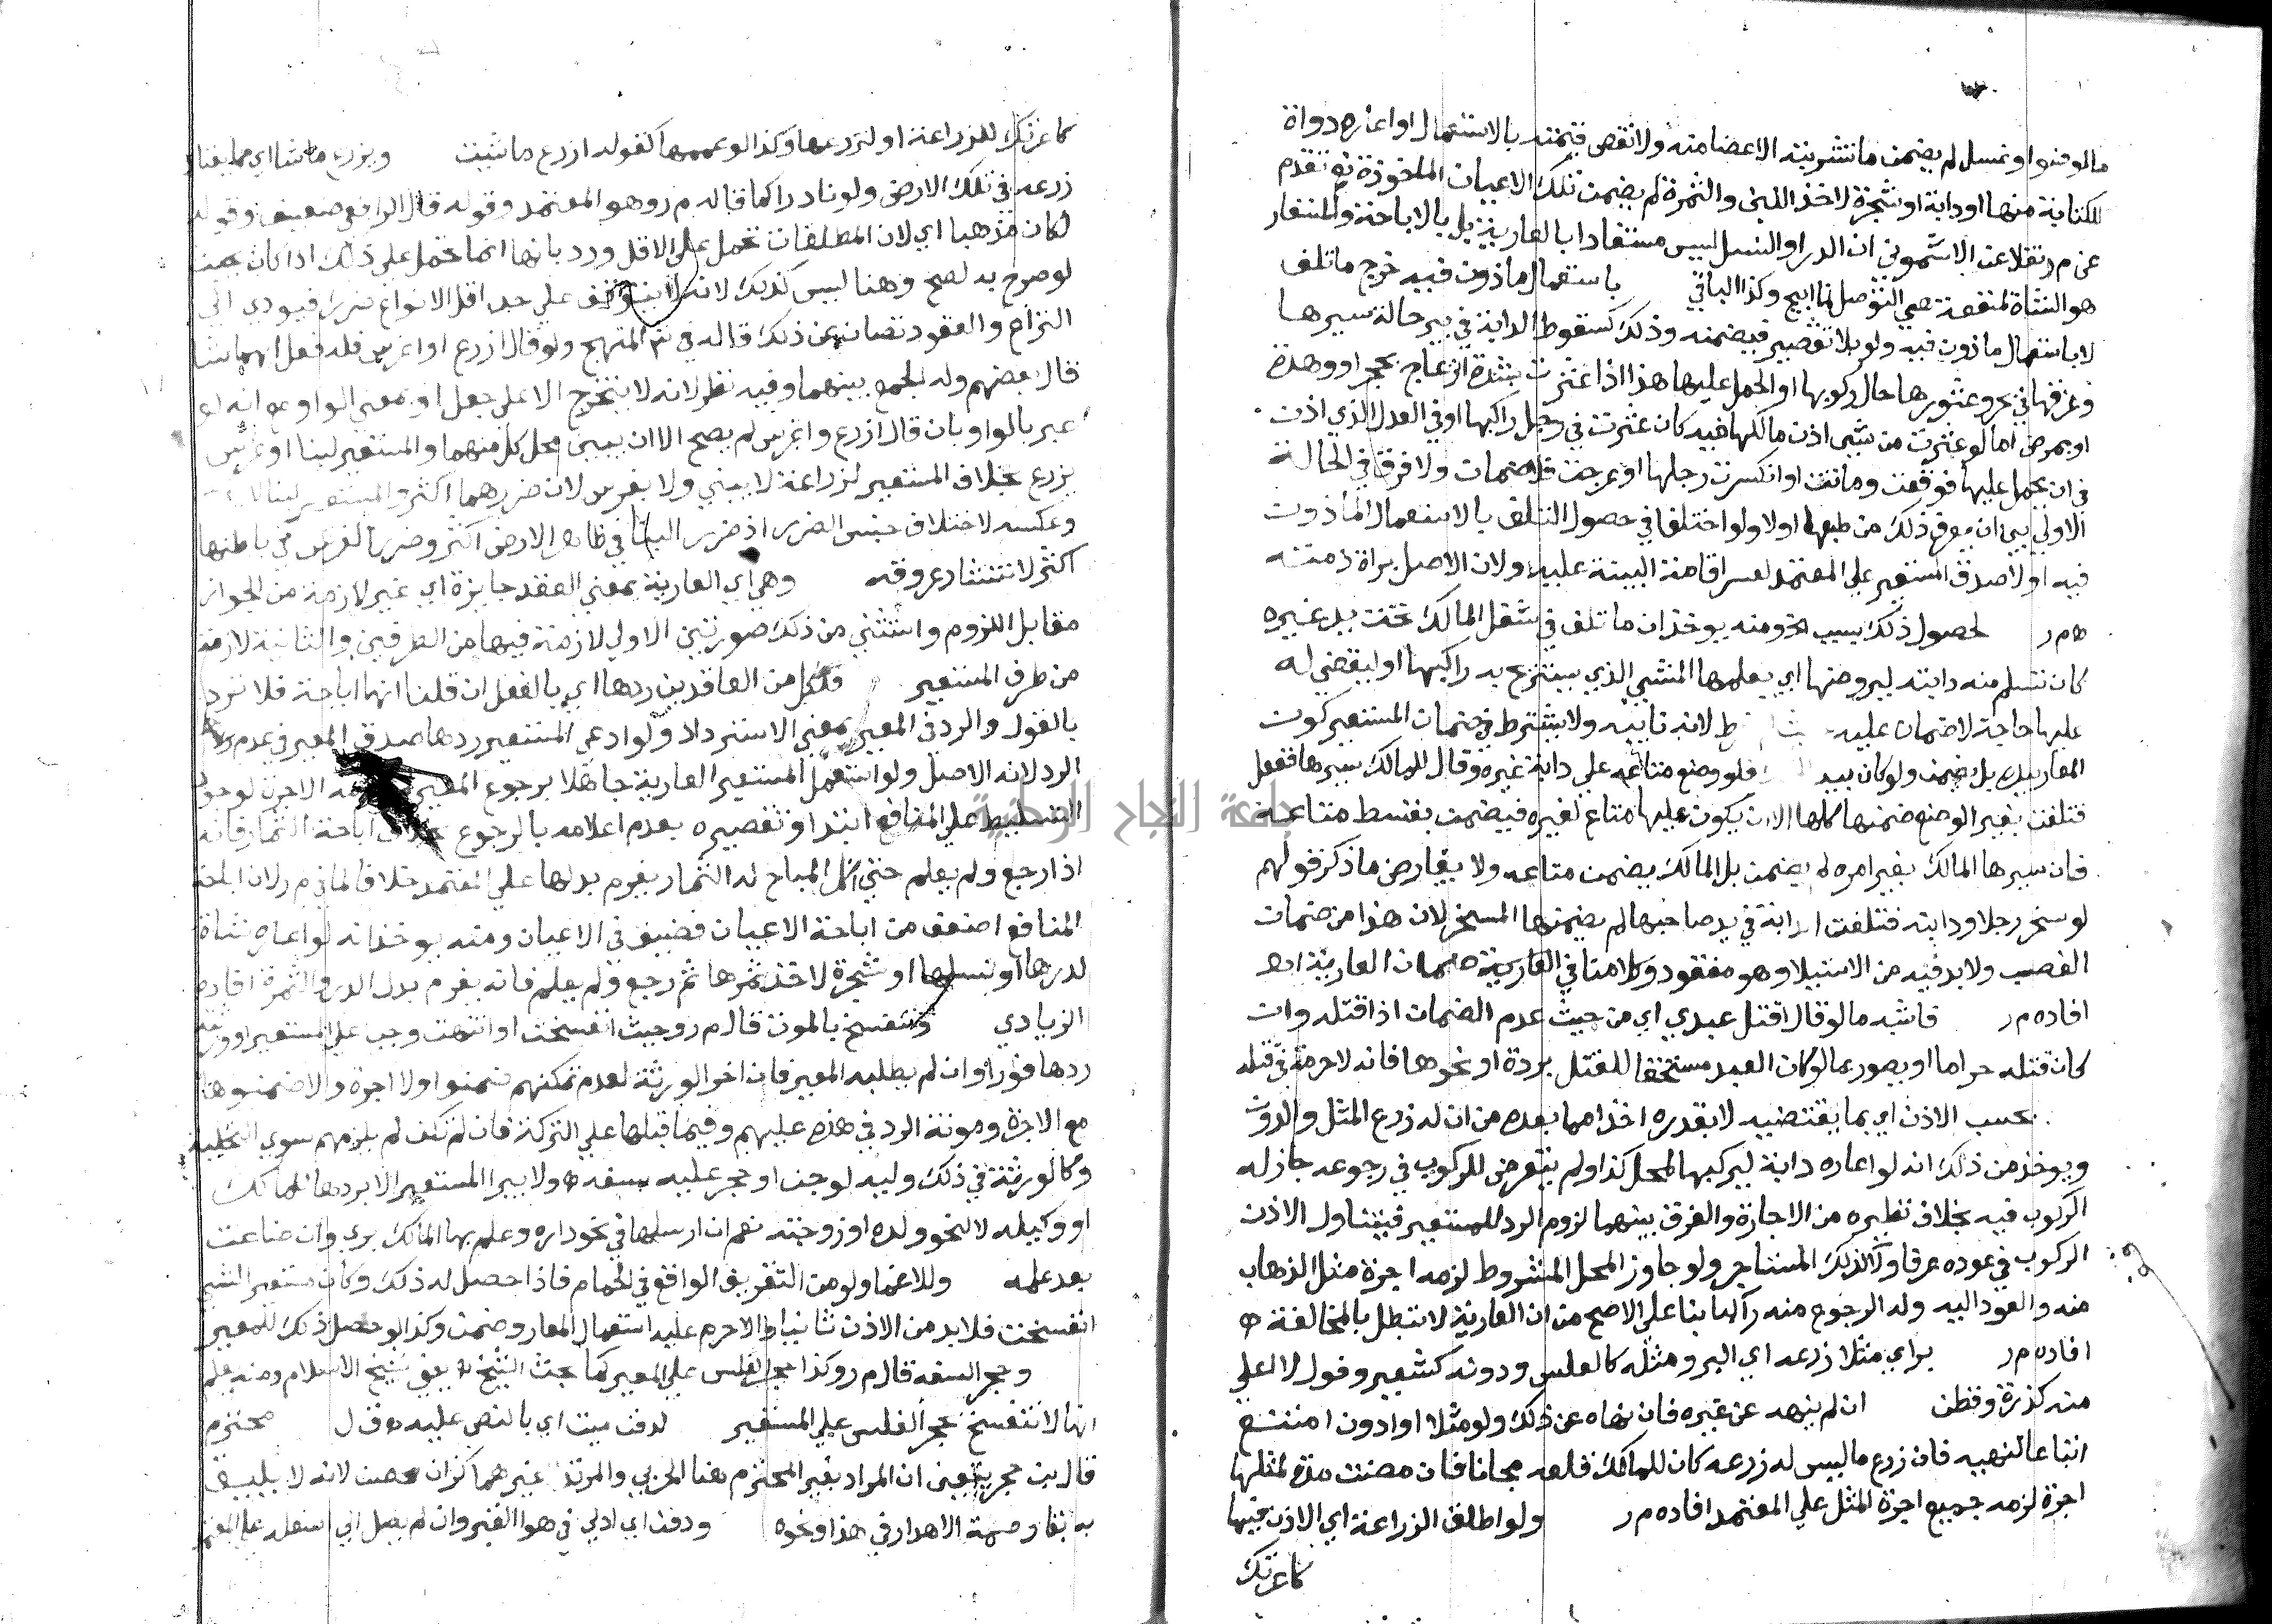 ما لو توضوا او غسل لم يضمن ما تشربته الاعضا منه ولا نقص قيمته بالاستعمال او اعاره دواة
للكتابة منها او دابة او شجرة لاخذ اللبن والثمرة لم يضمن تلك الاعيان الماخوذة تقدم
عن م ر نقلا عن الاشموني ان الدر او النسل ليس مستفادا بالعارية بل بالاباحة والمستعار
هو الشاة لمنفعة هي التوصل لما ابيح وكذا الباقي باستعمال ماذون فيه خرج ما تلف
لا باستعمال ماذون فيه ولو بلا تقصير فيضمنه وذلك كسقوط الدابة في بير حالة سيرها
وغرقها في بحر وعثورها حال ركوبها او الحمل عليها هذا اذا عثرت بشدة ازعاج بحجر او وهدة
او بمرض اما لو عثرت من شي اذن مالكها فيه كان عثرت في وحل راكبها او في العدل الذي اذن
في ان يحمل عليها فوقعت وماتت او انكسرت رجلها او عرجت فلا ضمان ولا فرق في الحالة
الاولي بين ان يعرف ذلك من طبعها اولا ولو اختلفا في حصول التلف بالاستعمال الماذون
فيه اولا صدق المستعير علي المعتمد لعسر اقامة البينة عليه ولان الاصل براة ذمته
ه م ر لحصول ذلك بسبب الخ ومنه يوخذ ان ما تلف في شغل المالك تحت يد غيره
كان تسلم منه دابته ليروضها اي يعلمها المشي الذي يستريح به راكبها او ليقضي له
عليها حاجة لا ضمان عليه لانه نايبه ولا يشترط في ضمان المستعير كون
المعار بيده بل يضمن ولو كان بيد فلو وضع متاعه علي دابة غيره وقال للمالك سيرها ففعل
فتلفت بغير الوضع ضمنها كلها الا ان يكون عليها متاع لغيره فيضمن بقسط متاعه
فان سيرها المالك بغير امره لم يضمن بل المالك يضمن متاعه ولا يعارض ما ذكر قولهم
لو سخر رجلا ودابته فتلفت الدابة في يد صاحبها لم يضمنها المسخر لان هذا من ضمان
الغصب ولا بد فيه من الاستيلا وهو مفقود وكلامنا في العارية ضمان العارية اه
افاده م ر فاشبه ما لو قال اقتل عبدي اي من حيث عدم الضمان اذا قتله وان
كان قتله حراما او يصور بما لو كان العبد مستحقا للقتل بردة او نحوها فانه لا حرمة في قتله
بحسب الاذن اي بما يقتضيه لا بقدره اخذا مما بعده من ان له زرع المثل والدون
ويوخذ من ذلك انه لو اعاره دابة ليركبها لمحل كذا ولم يتعرض للركوب في رجوعه جاز له
الركوب فيه بخلاف نظيره من الاجارة والفرق بينهما لزوم الرد للمستعير فيتناول الاذن
الركوب في عوده عرفا ولا كذلك المستاجر ولو جاوز المحل المشروط لزمه اجرة مثل الذهاب
منه والعود اليه وله الرجوع منه راكبا بنا علي الاصح من ان العارية لا تبطل بالمخالفة ه
افاده م ر براي مثلا زرعه اي البر ومثله كالعلس ودونه كشعير وفول لا اعلي
منه كذرة وقطن ان لم ينهه عن غيره فان نهاه عن ذلك ولو مثلا او ادون امتنع
اتباعا لنهيه فان زرع ما ليس له زرعه كان للمالك قلعه مجانا فان مضت مدة لمثلها
اجرة لزمه جميع اجرة المثل علي المعتمد افاده م ر ولو اطلق الزراعة اي الاذن فيها
كاعرتك
كاعرتك للزراعة او لتزرعها وكذا لو عممها كقوله ازرع ما شيت ويزرع ما شا اي مما يعتاد
زرعه في تلك الارض ولو نادرا كما قاله م ر وهو المعتمد وقوله قال الرافعي ضعيف وقوله
لكان مذهبا اي لان المطلقات تحمل علي الاقل ورد بانها انما تحمل علي ذلك اذا كان بحيث
لو صرح به لصح وهنا ليس كذلك لانه لا يتوقف علي حد اقل الانواع ضررا فيودي الي
النزاع والعقود تصان عن ذلك قاله في ش المنهج ولو قال ازرع او اغرس فله فعل ايهما شا
قال بعضهم وله الجمع بينهما وفيه نظر لانه لا يتخرج الا علي جعل او بمعني الواو مع انه لو
عبر بالواو بان قال ازرع واغرس لم يصح الا ان يبين محل كل منهما والمستعير لبنا او غرس
يزرع بخلاف المستعير لزراعة لا يبني ولا يغرس لان ضررهما اكثر والمستعير لبنا لا
وعكسه لاختلاف جنس الضرر اذ ضرر البنا في ظاهر الارض اكثر وضرر الغرس في باطنها
اكثر لانتشار عروقه وهي اي العارية بمعني العقد جايزة اي غير لازمة من الجواز
مقابل اللزوم واستثني من ذلك صورتين الاولي لازمة فيها من الطرفين والثانية لازمة
من طرف المستعير فلكل من العاقدين ردها اي بالفعل ان قلنا انها اباحة فلا ترد
بالقول والرد في المعير بمعني الاسترداد ولو ادعي المستعير ردها صدق المعير في عدم
الرد لانه الاصل ولو استعمل المستعير العارية جاهلا برجوع المعير الاجرة
التسليط علي المنافع ابتدا وتقصيره بعدم اعلامه بالرجوع اباحة الثمار فانه
اذا رجع ولم يعلم حتي اكل المباح له الثمار يغرم بدلها علي المعتمد خلافا لما في م ر لان اباحة
المنافع اضعف من اباحة الاعيان فضيق في الاعيان ومنه يوخذ انه لو اعاره شاة
لدرها او نسلها او شجرة لاخذ ثمرها ثم رجع ولم يعلم فانه يغرم بدل الدر والثمرة افاده
الزيادي وتنفسخ بالموت قال م ر وحيث انفسخت او انتهت وجب علي المستعير او ورثته
ردها فورا وان لم يطلبه المعير فان اخر الورثة لعدم تمكنهم ضمنوا ولا اجرة والا ضمنوها
مع الاجرة ومونة الرد في هذه عليهم وفيما قبلها علي التركة فان لم تكف لم يلزمهم سوي التخلية
وكالورثة في ذلك وليه لو جن او حجر عليه بسفه ه ولا يبرا المستعير الا بردها للمالك
او وكيله لا لنحو ولده او زوجته نعم ان ارسلها في نحو داره وعلم بها المالك بري وان ضاعت
بعد علمه وللاغما ولو من التفريق الواقع في الحمام فاذا حصل له ذلك وكان مستعير الشي
انفسخت فلا بد من الاذن ثانيا والا حرم عليه استعمال المعار وضمن وكذا لو حصل ذلك للمعير
وحجر السفه قال م ر وكذا حجر الفلس علي المعير كما بحث الشيخ ه يعني شيخ الاسلام ومنه يعلم
انها لا تنفسخ بحجر الفلس علي المستعير لدفن ميت اي بالنص عليه ه ق ل محترم
قال بن حجر يتعين ان المراد بغير المحترم هنا الحربي والمرتد غيرهما كزان محصن لانه لا يليق
به بقا وصمة الاهدار في هذا ونحوه ودفن اي ادلي في هوا القبر وان لم يصل الي اسفله علي المعتمد
جامعة النجاح الوطنية